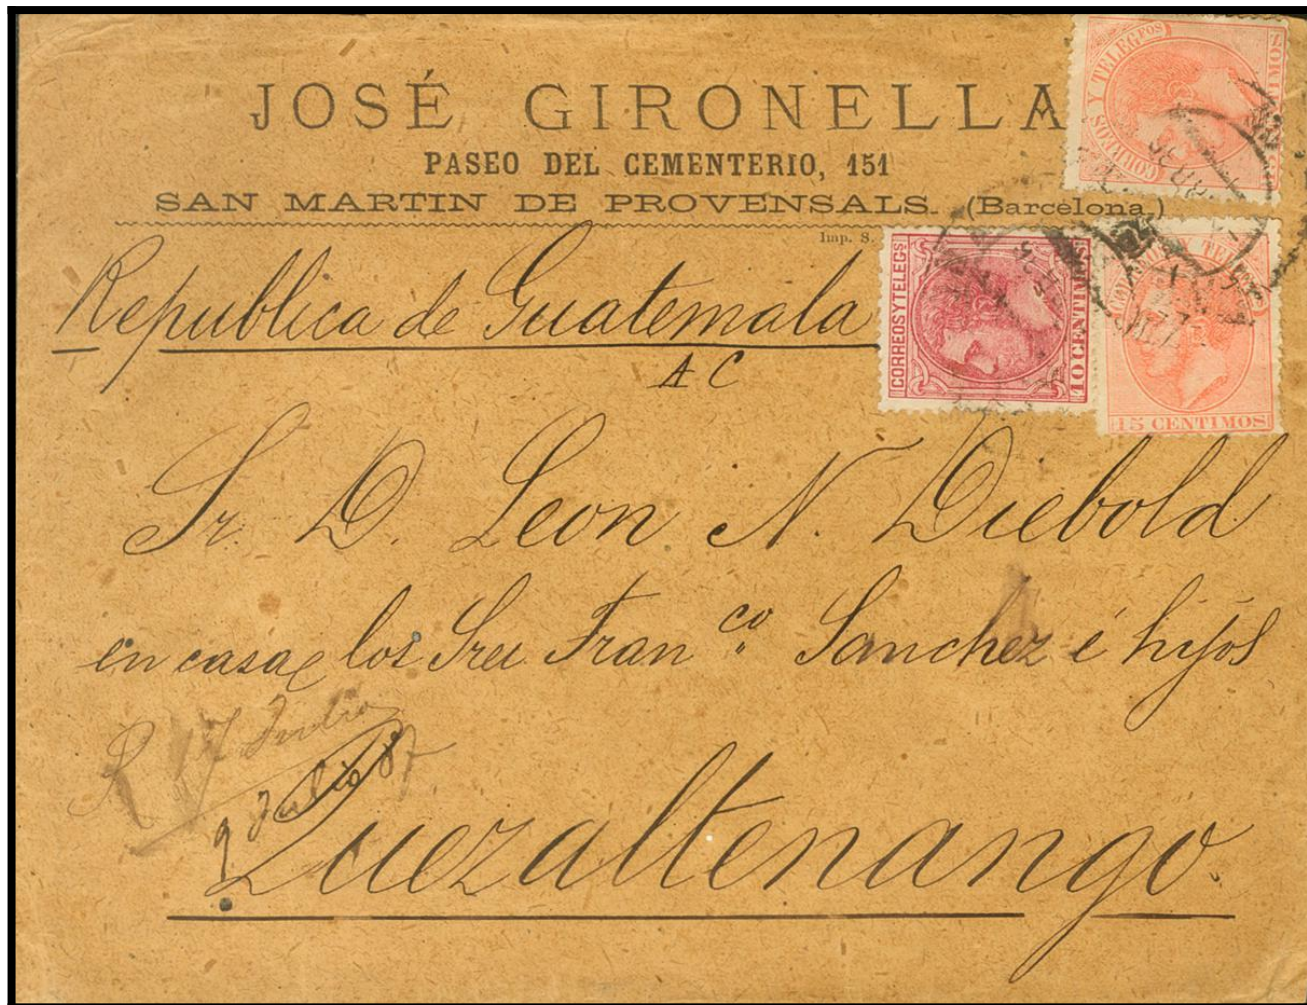 JOSÉ GIRONELLA
PASEO DEL CEMENTERIO, 151
SAN MARTIN DE PROVENSALS. (Barcelona.)
Imp. S.
CORREOS Y TELEGFOS
CORREOS Y TELEGS
10 CENTIMOS
15 CENTIMOS
Republica de Guatemala
A C
Sr. D. Leon N. Diebold
en casa los Sres Franco Sanchez é hijos
R 17 Julio
9 Julio 87.
Quezaltenango.